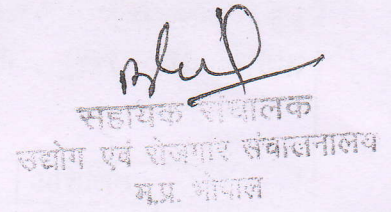 सहायक संचालक
उद्योग एवं रोजगार संचालनालय
म.प्र. भोपाल